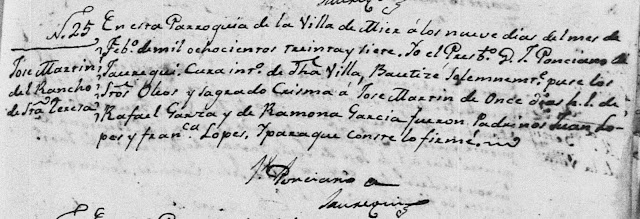 N. 25
Jose Martin
del Rancho
de Sta. Teresa
En esta Parroquia de la Villa de Mier á los nueve dias del mes de
Febo. de mil ochocientos treinta y siete. Yo el Presbo. D. J. Ponciano de
Jauregui. Cura into. de dha. Villa, Bautize Solemnemte. puse los
Stos. Oleos y Sagrado Crisma á Jose Martin de Once dias h. l. de
Rafael Garza y de Ramona Garcia fueron Padrinos Juan Lo-
pes y franca. Lopes. Y para que conste lo firmé.
Ponciano de
Jauregui